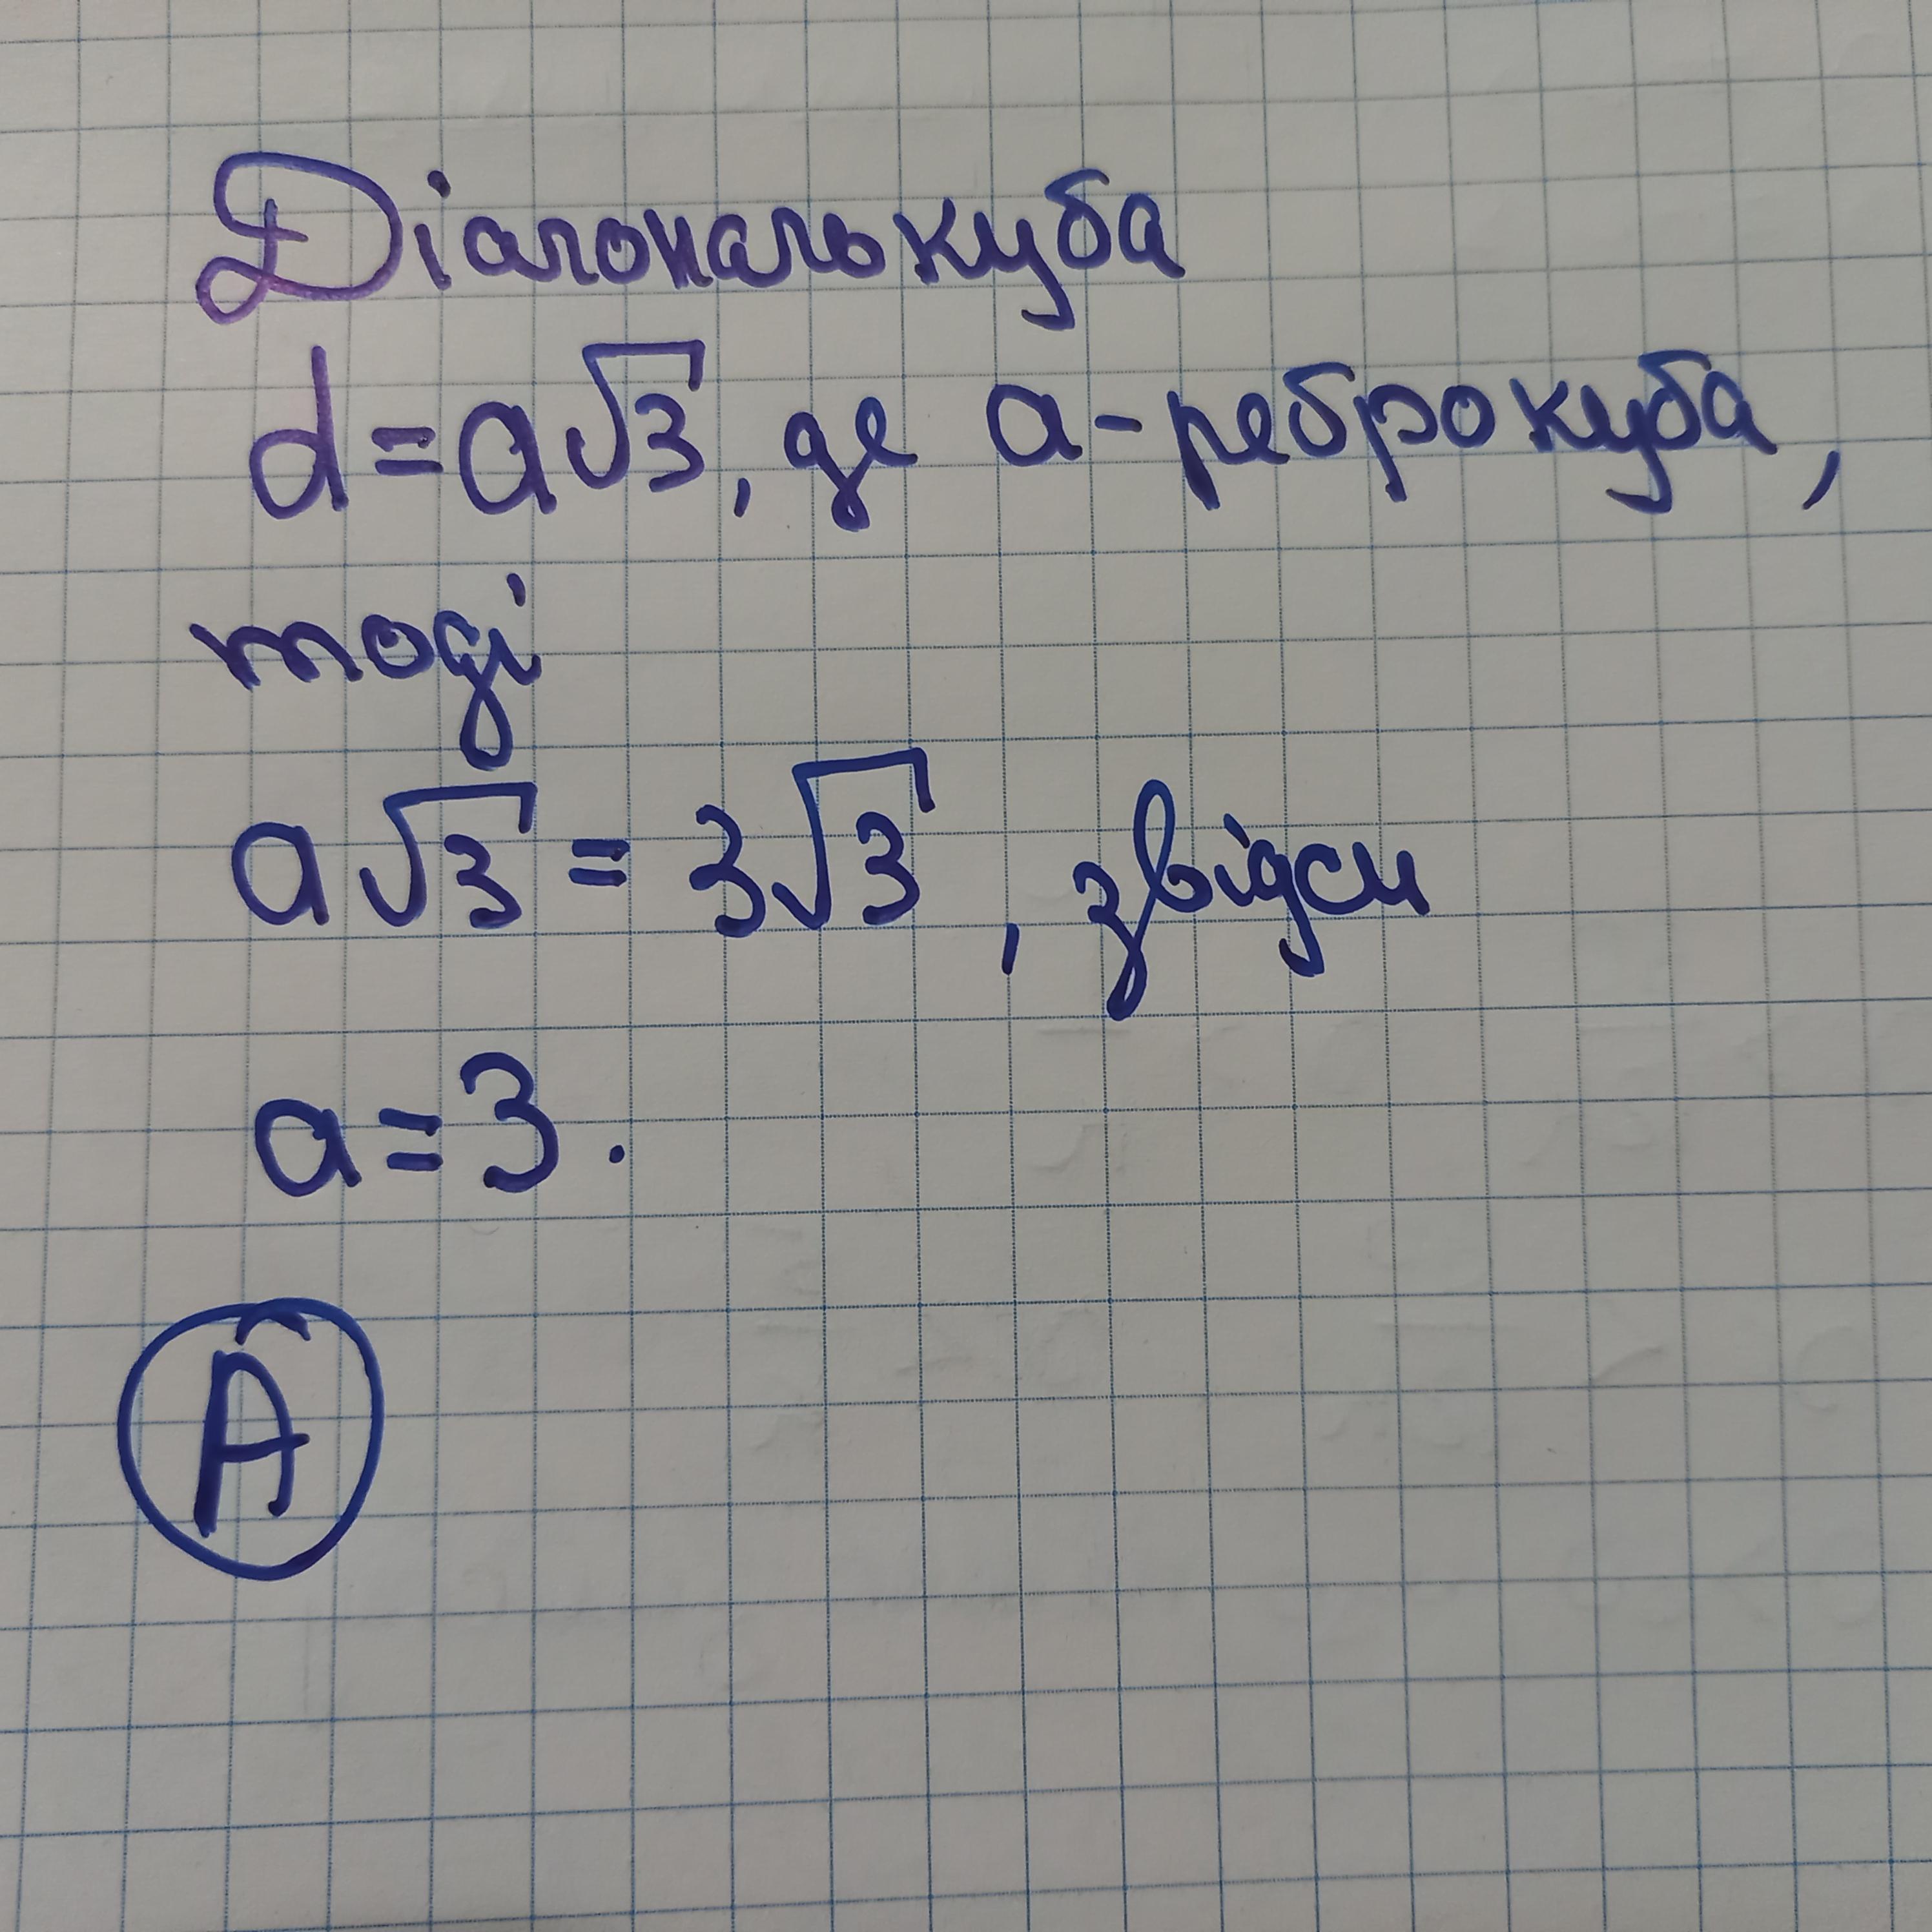 Діагональ куба
d = a√3, де a - ребро куба,
тоді
a√3 = 3√3, звідси
a = 3.
А